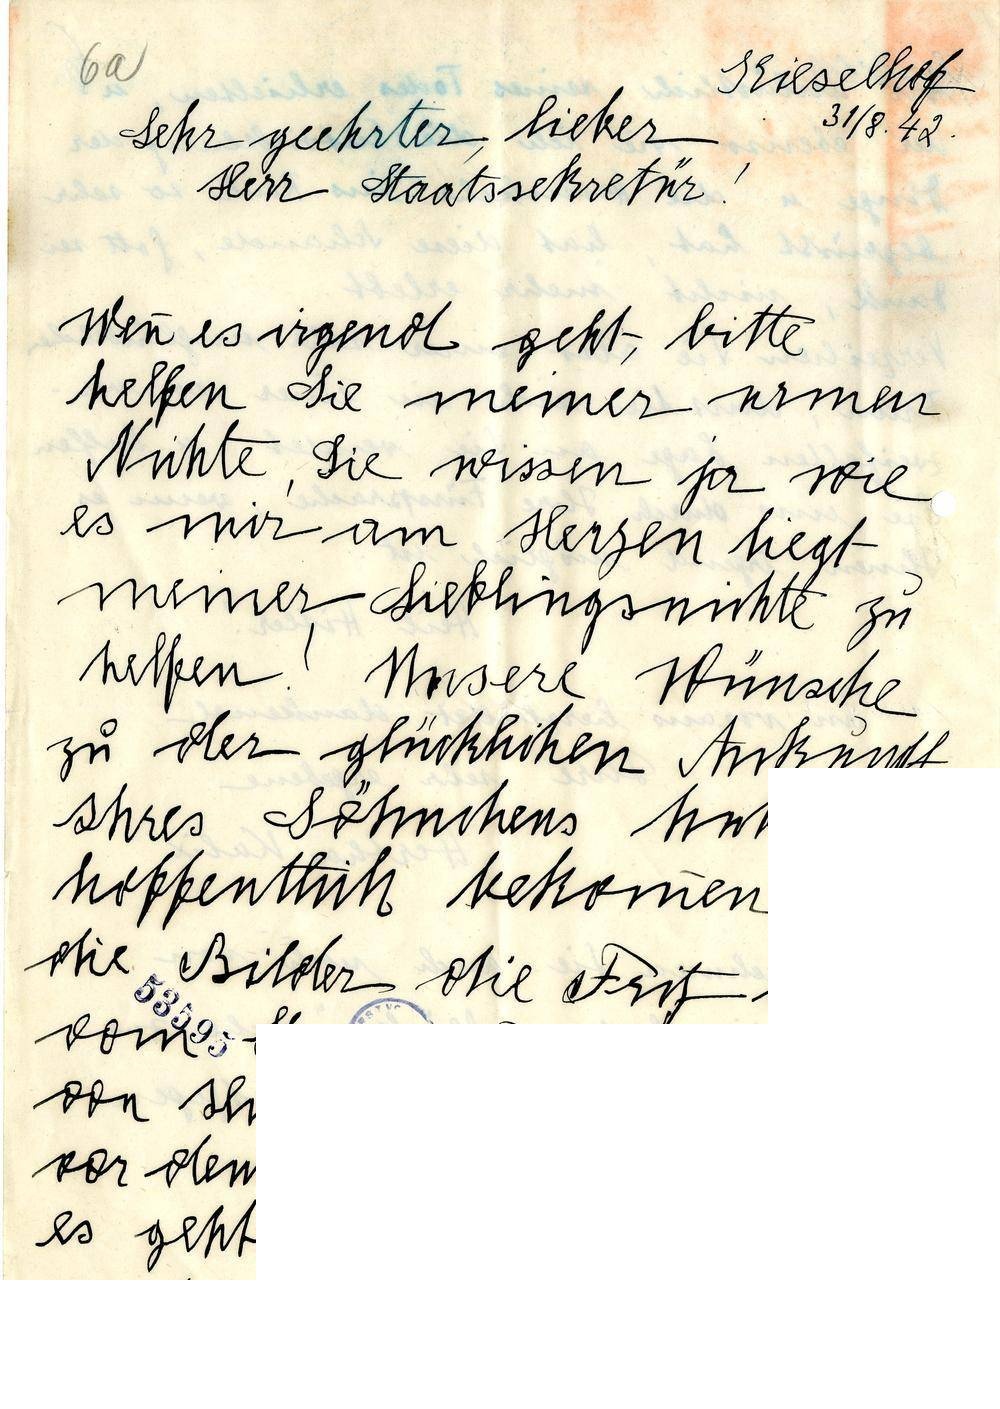 6a
Kieselhof
31/8. 42.
Sehr geehrter, lieber
Herr Staatssekretär!
Weñ es irgend geht, bitte
helfen Sie meiner armen
Nichte, Sie wissen ja wie
es mir am Herzen liegt
meiner Lieblingsnichte zu
helfen! Unsere Wünsche
zu der glücklichen Ankunft
Ihres Söhnchens
hoffentlich bekom̄en
die Bilder die Fritz
53595
vom
von
vor dem
es geht